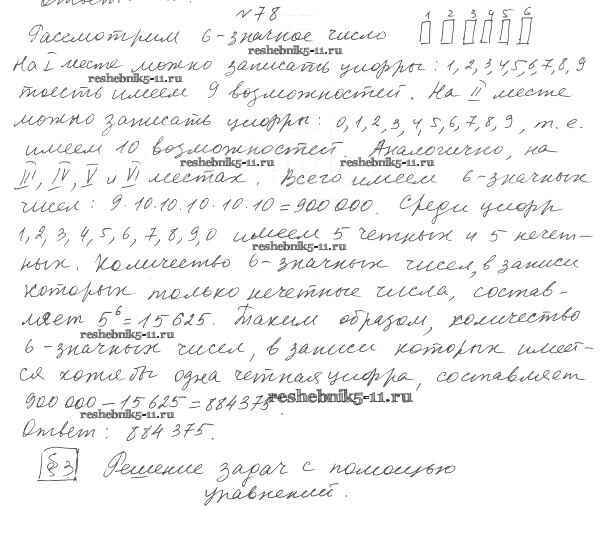 №78
1 2 3 4 5 6
Рассмотрим 6-значное число
На I месте можно записать цифры: 1,2,3,4,5,6,7,8,9
тоесть имеем 9 возможностей. На II месте
можно записать цифры: 0,1,2,3,4,5,6,7,8,9, т.е.
имеем 10 возможностей. Аналогично, на
III, IV, V и VI местах. Всего имеем 6-значных
чисел: 9·10·10·10·10·10=900 000. Среди цифр
1,2,3,4,5,6,7,8,9,0 имеем 5 четных и 5 нечет-
ных. Количество 6-значных чисел, в записи
которых только нечетные числа, состав-
ляет 5⁶=15625. Таким образом, количество
6-значных чисел, в записи которых имеет-
ся хотя бы одна четная цифра, составляет
900 000-15625=884375.
Ответ: 884 375.
§3 Решение задач с помощью
уравнений.
reshebnik5-11.ru
reshebnik5-11.ru
reshebnik5-11.ru
reshebnik5-11.ru
reshebnik5-11.ru
reshebnik5-11.ru
reshebnik5-11.ru
reshebnik5-11.ru